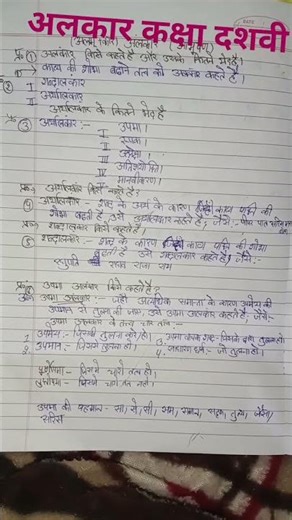 अलकार कक्षा दशवी
अलंकार (आभूषण)
प्र० ① अलंकार किसे कहते है और उसके कितने भेद है।
काव्य की शोभा बढ़ाने तत्व को अलंकार कहते है।
② I शब्दालंकार
II अर्थालंकार
अर्थालंकार के कितने भेद है
प्र० ③ अर्थालंकार :- I उपमा।
II रूपक।
III उत्प्रेक्षा
अतिशयोक्ति।
मानवीकरण।
प्र० अर्थालंकार किसे कहते है?
④ अर्थालंकार - शब्द के अर्थ के कारण काव्य पंक्ति की
शोभा बढ़ती है, उसे अर्थालंकार कहते है, जैसे:-
प्र० शब्दालंकार किसे कहते है।
⑤ शब्दालंकार:- शब्द के कारण काव्य पंक्ति की शोभा
बढ़ती है उसे शब्दालंकार कहते है, जैसे:-
रघुपति राघव राजा राम
प्र० उपमा अलंकार किसे कहते है?
उपमा अलंकार :- जहाँ अत्यधिक समानता के कारण उपमेय की
उपमान से तुलना की जाय, उसे उपमा अलंकार कहते है, जैसे:-
उपमा अलंकार के तत्व चार
1. उपमेय:- जिसकी तुलना हो। 3. वाचक शब्द:- जिससे तुलना हो
2. उपमान:- जिससे तुलना हो। 4. साधारण धर्म:- जो तुलना हो।
पूर्णोपमा:- जिसमें चारो तत्व हो।
लुप्तोपमा:- जिसमें चारो तत्व
उपमा की पहचान - सा, से, सी, सम, समान, सदृश, तुल्य, जैसा
सरिस